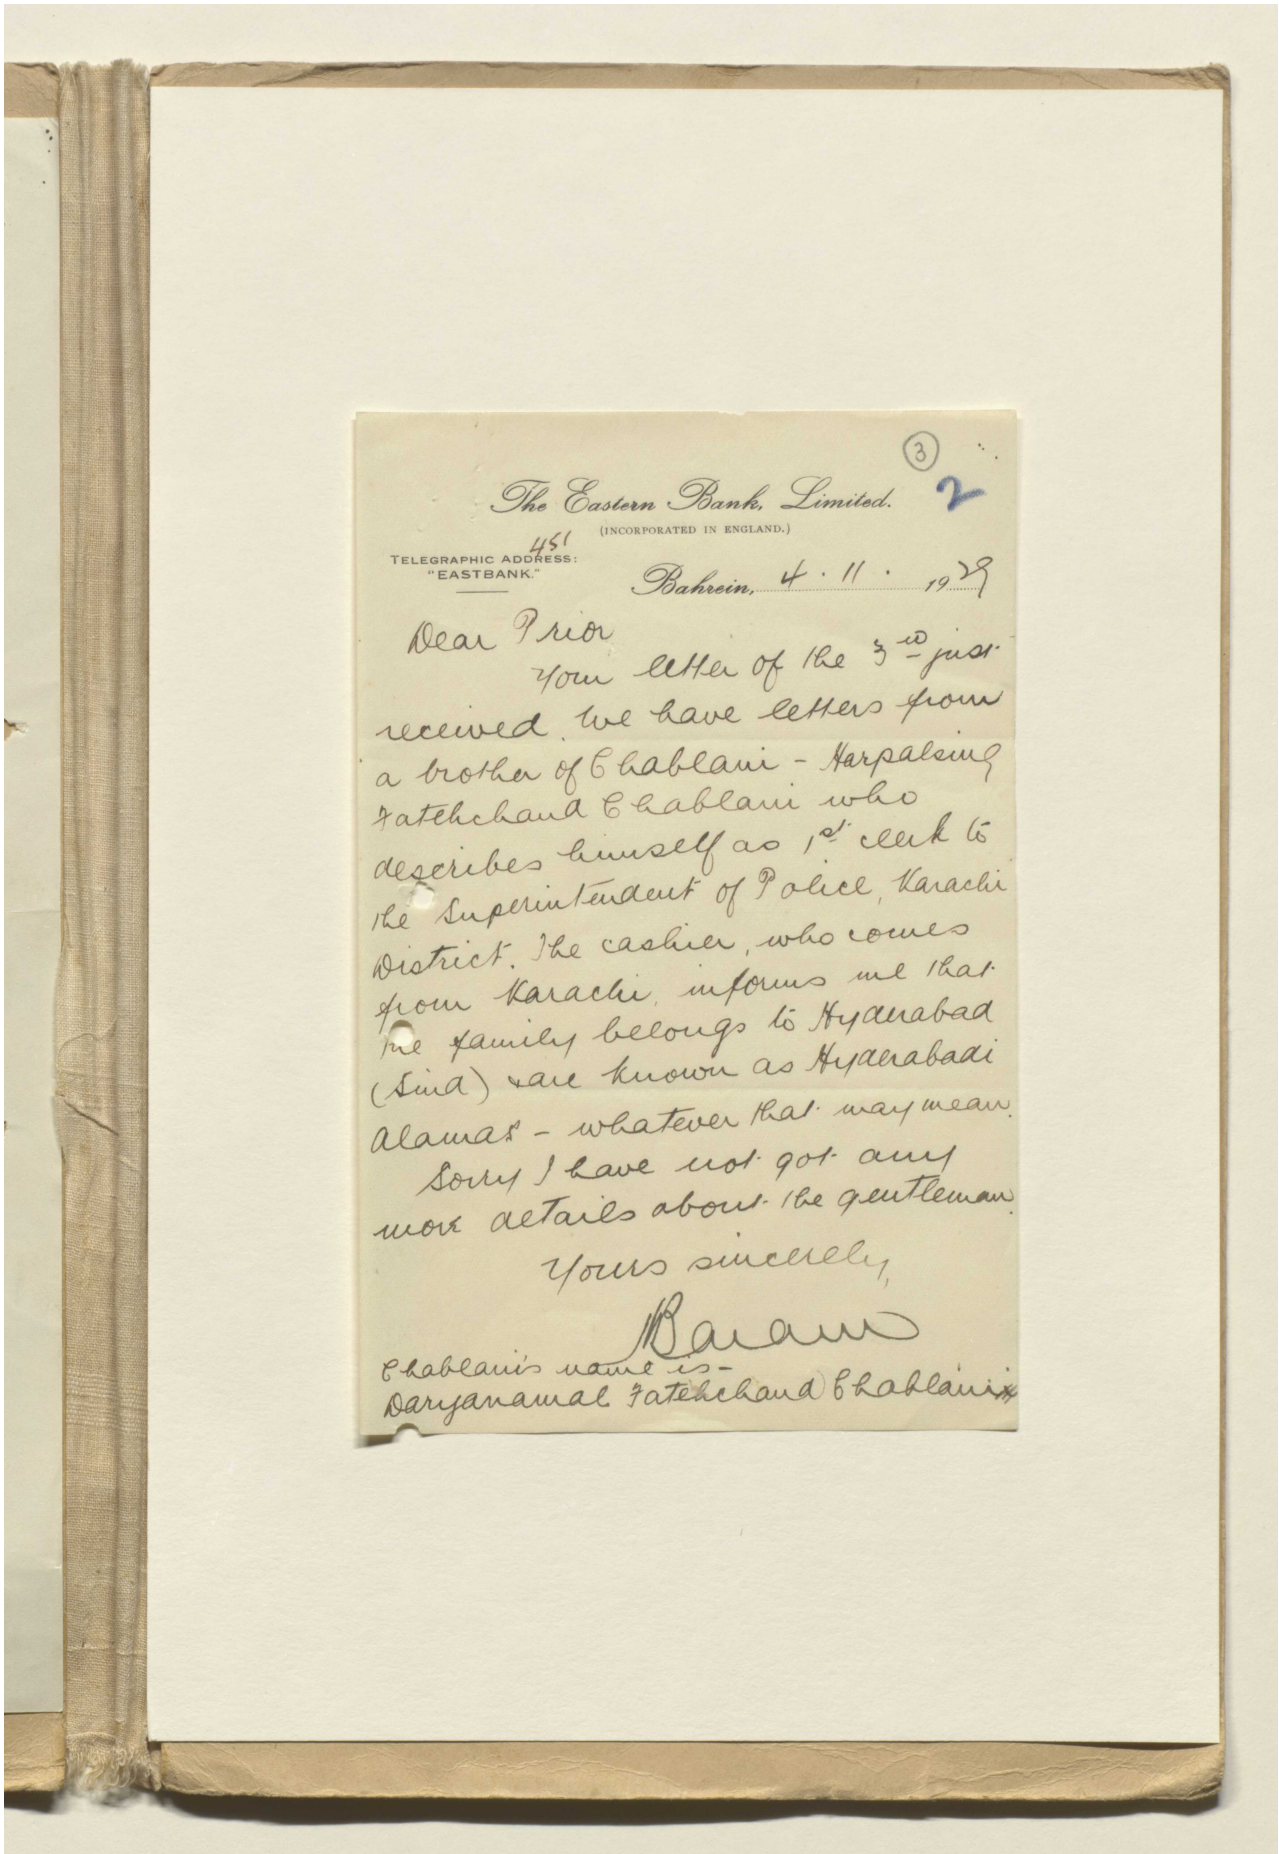 3
2
The Eastern Bank, Limited.
(INCORPORATED IN ENGLAND.)
451
TELEGRAPHIC ADDRESS:
"EASTBANK."
Bahrein, 4 . 11 . 1929
Dear Prior
Your letter of the 3rd just
received. We have letters from
a brother of Chablani - Harpalsing
Fatehchand Chablani who
describes himself as 1st clerk to
the Superintendent of Police, Karachi
District. The cashier, who comes
from Karachi, informs me that
the family belongs to Hyderabad
(Sind) & are known as Hyderabadi
Alamas - whatever that may mean.
Sorry I have not got any
more details about the gentleman.
Yours sincerely,
Chablani's name is -
Daryanamal Fatehchand Chablani